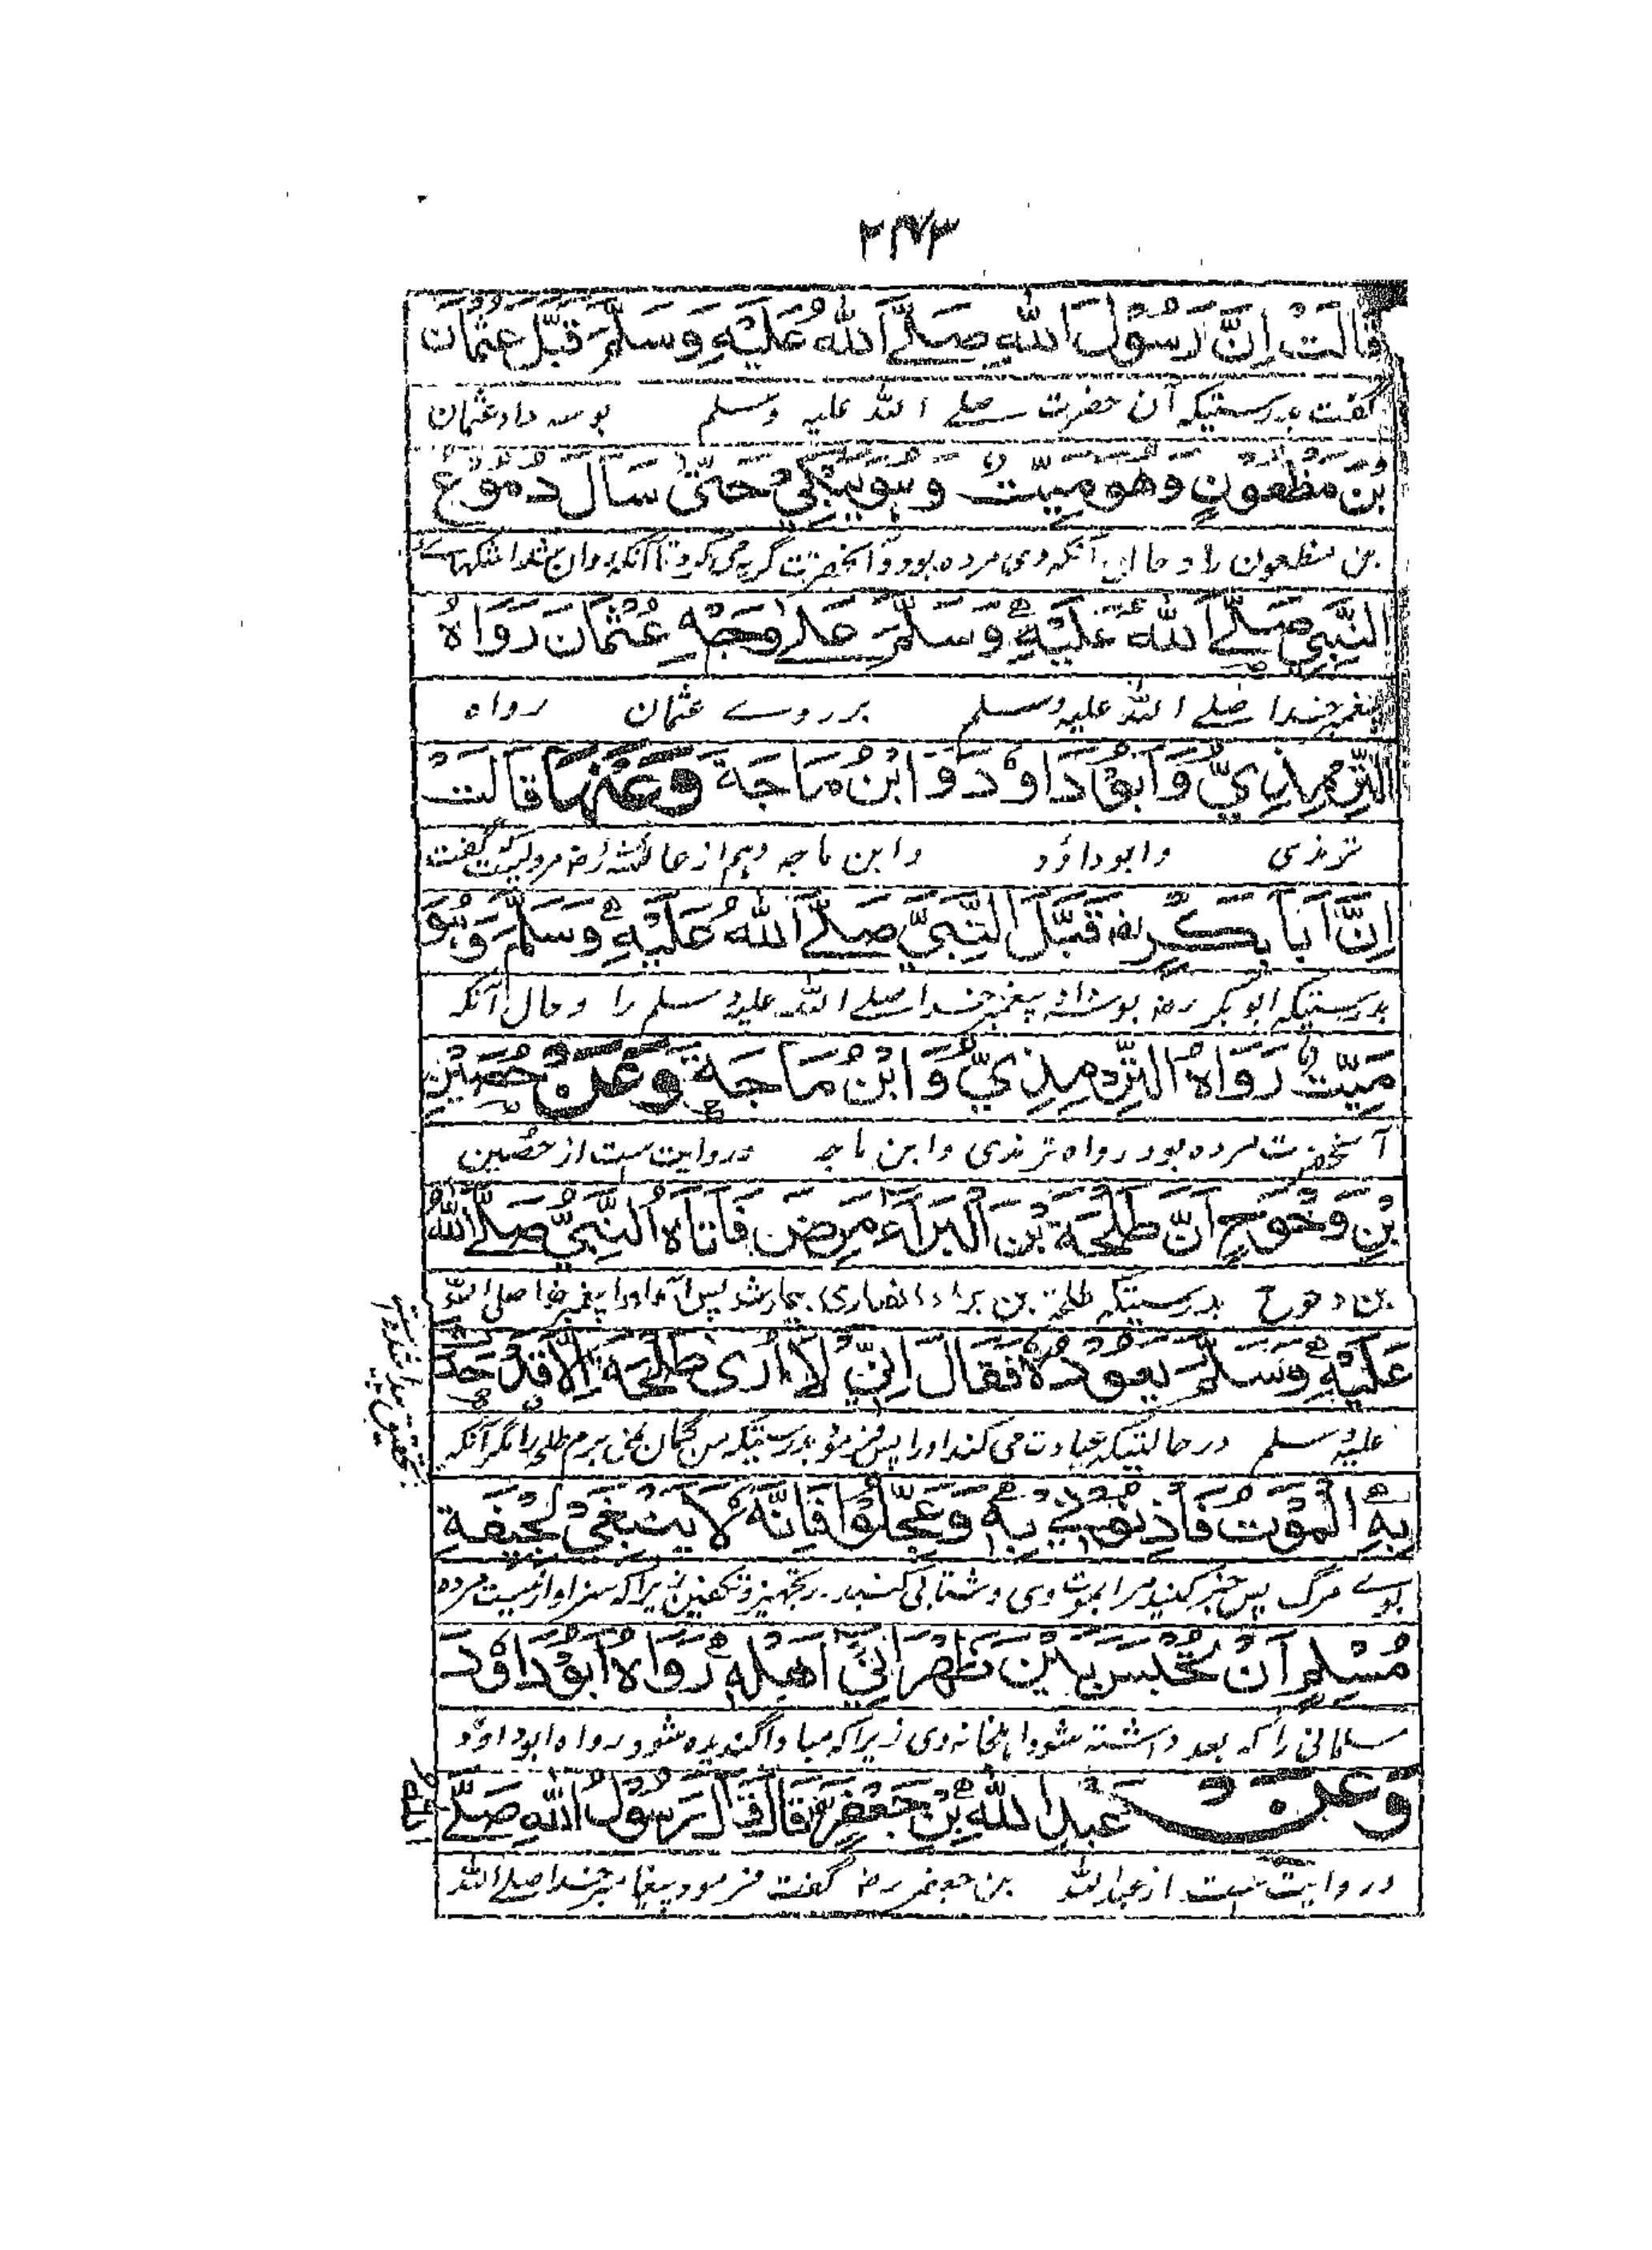 قَالَتْ اِنَّ رَسُوْلَ اللهِ صَلَّے اللهُ عَلَيْهِ وَسَلَّمَ قَبَّلَ عُثْمَانَ
گفت بدرستیکہ آن حضرت صلے اللہ علیہ وسلم بوسہ داد عثمان
بْنَ مَظْعُوْنٍ وَهُوَ مَيِّتٌ وَهُوَ يَبْكِيْ حَتّٰى سَالَ دُمُوْعُ
بن مظعون را و حال آنکہ وی مردہ بود و آنحضرت گریہ می کرد تا آنکہ روان شد اشکہاے
النَّبِيِّ صَلَّے اللهُ عَلَيْهِ وَسَلَّمَ عَلٰے وَجْهِ عُثْمَانَ رَوَاهُ
پیغمبر خدا صلے اللہ علیہ وسلم بر روے عثمان رواہ
التِّرْمِذِيُّ وَاَبُوْ دَاوٗدَ وَابْنُ مَاجَةَ وَعَنْهَا قَالَتْ
ترمذی وابوداؤد وابن ماجہ وہم از عائشہ رض مرویست کہ گفت
اِنَّ اَبَا بَكْرٍ رض قَبَّلَ النَّبِيَّ صَلَّے اللهُ عَلَيْهِ وَسَلَّمَ وَهُوَ
بدرستیکہ ابوبکر رض بوسہ داد پیغمبر خدا صلے اللہ علیہ وسلم را وحال آنکہ
مَيِّتٌ رَوَاهُ التِّرْمِذِيُّ وَابْنُ مَاجَةَ وَعَنْ حُصَيْنِ
آنحضرت مردہ بود رواہ ترمذی وابن ماجہ وروایت ست از حصین
بْنِ وَحْوَحٍ اَنَّ طَلْحَةَ بْنَ الْبَرَاءِ مَرِضَ فَاَتَاهُ النَّبِيُّ صَلَّے اللهُ
بن وحوح بدرستیکہ طلحہ بن براء انصاری بیمار شد پس آمد اورا پیغمبر خدا صلی اللہ
عَلَيْهِ وَسَلَّمَ يَعُوْدُهٗ فَقَالَ اِنِّيْ لَا اَرٰى طَلْحَةَ اِلَّا قَدْ حَدَثَ
علیہ وسلم در حالتیکہ عیادت می کند اورا پس فرمود بدرستیکہ من گمان نمی برم طلحہ را مگر آنکہ
بتحقیق پیدا شدہ است
بِهِ الْمَوْتُ فَاٰذِنُوْنِيْ بِهٖ وَعَجِّلُوْا فَاِنَّهٗ لَا يَنْبَغِيْ لِجِيْفَةِ
بوے مرگ پس خبر کنید مرا بموت وی وشتابی کنید در تجہیز وتکفین زیرا کہ سزاوار نیست مردہ
مُسْلِمٍ اَنْ تُحْبَسَ بَيْنَ ظَهْرَانَيْ اَهْلِهٖ رَوَاهُ اَبُوْ دَاوٗدَ
مسلمانی را کہ بعد داشتہ شود اہلخانہ وی زیرا کہ مبادا گندیدہ شود رواہ ابوداؤد
وَعَنْ عَبْدِ اللهِ بْنِ جَعْفَرٍ رض قَالَ قَالَ رَسُوْلُ اللهِ صَلَّے
وروایت ست از عبداللہ بن جعفر رض گفت فرمود پیغامبر خدا صلے اللہ